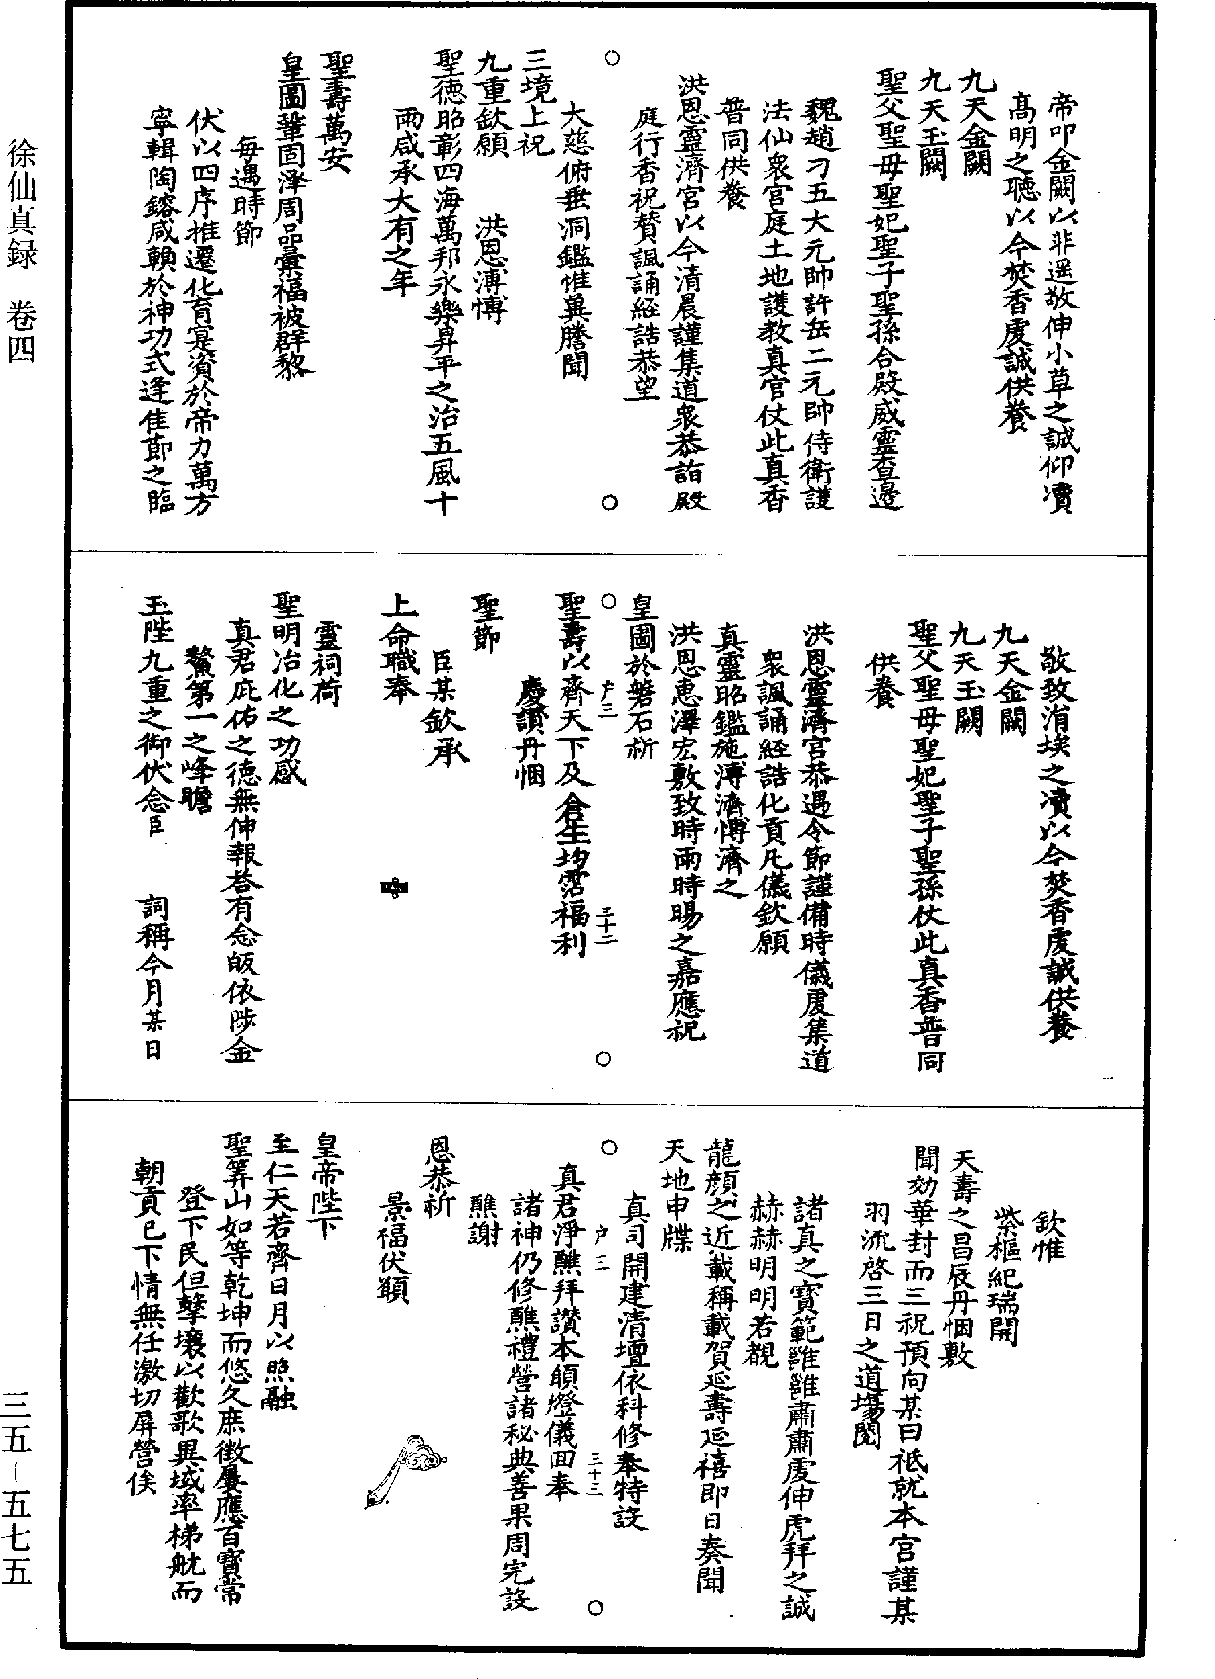 帝叩金闕以非遥敬伸小草之誠仰瀆
高明之聽以今焚香虔誠供養
九天金闕
九天玉闕
聖父聖母聖妃聖子聖孫合殿威靈查邉
魏趙刁五大元帥許岳二元帥侍衛護
法仙衆宫庭土地護教真官仗此真香
普同供養
洪恩靈濟宫以今清晨謹集道衆恭詣殿
庭行香祝賛諷誦經誥恭望
大慈俯垂洞鑑惟冀謄聞
三境上祝
九重欽願 洪恩溥博
聖德昭彰四海萬邦永樂昇平之治五風十
雨咸承大有之年
聖壽萬安
皇圖鞏固澤周品彙福被群黎
毎遇時節
伏以四序推遷化育寔資於帝力萬方
寧輯陶鎔咸賴於神功式逢佳節之臨
敬致涓埃之瀆以今焚香虔誠供養
九天金闕
九天玉闕
聖父聖母聖妃聖子聖孫仗此真香普同
供養
洪恩靈濟宫恭遇令節謹備時儀虔集道
衆諷誦經誥化貢凡儀欽願
真靈昭鑑施溥濟博濟之
洪恩惠澤宏敷致時雨時暘之嘉應祝
皇圖於磐石祈
户三 三十二
聖壽以齊天下及倉生均霑福利
慶讚丹悃
聖節
臣某欽承
上命職奉
靈祠荷
聖明治化之功感
真君庇佑之德無伸報荅有念皈依陟金
鰲第一之峰瞻
玉陛九重之御伏念臣 詞稱今月某日
欽惟
紫樞紀瑞開
天壽之昌辰丹悃敷
聞効華封而三祝預向某曰祗就本宫謹某
羽流啓三日之道場闡
諸真之寳範雝雝肅肅虔伸虎拜之誠
赫赫明明若覩
龍顔之近載稱載賀延壽延禧即日奏聞
天地申牒
真司開建清壇依科修奉特設
户三 三十三
真君淨醮拜讚本頠燈儀回奉
諸神仍修醮禮營諸秘典善果周完設
醮謝
恩恭祈
景福伏願
皇帝陛下
至仁天若齊日月以照融
聖筭山如等乾坤而悠久庶徵屢應百寳常
登下民但擊壤以歡歌異域率梯航而
朝貢已下情無任激切屏營俟
徐仙真録 卷四
三五-五七五